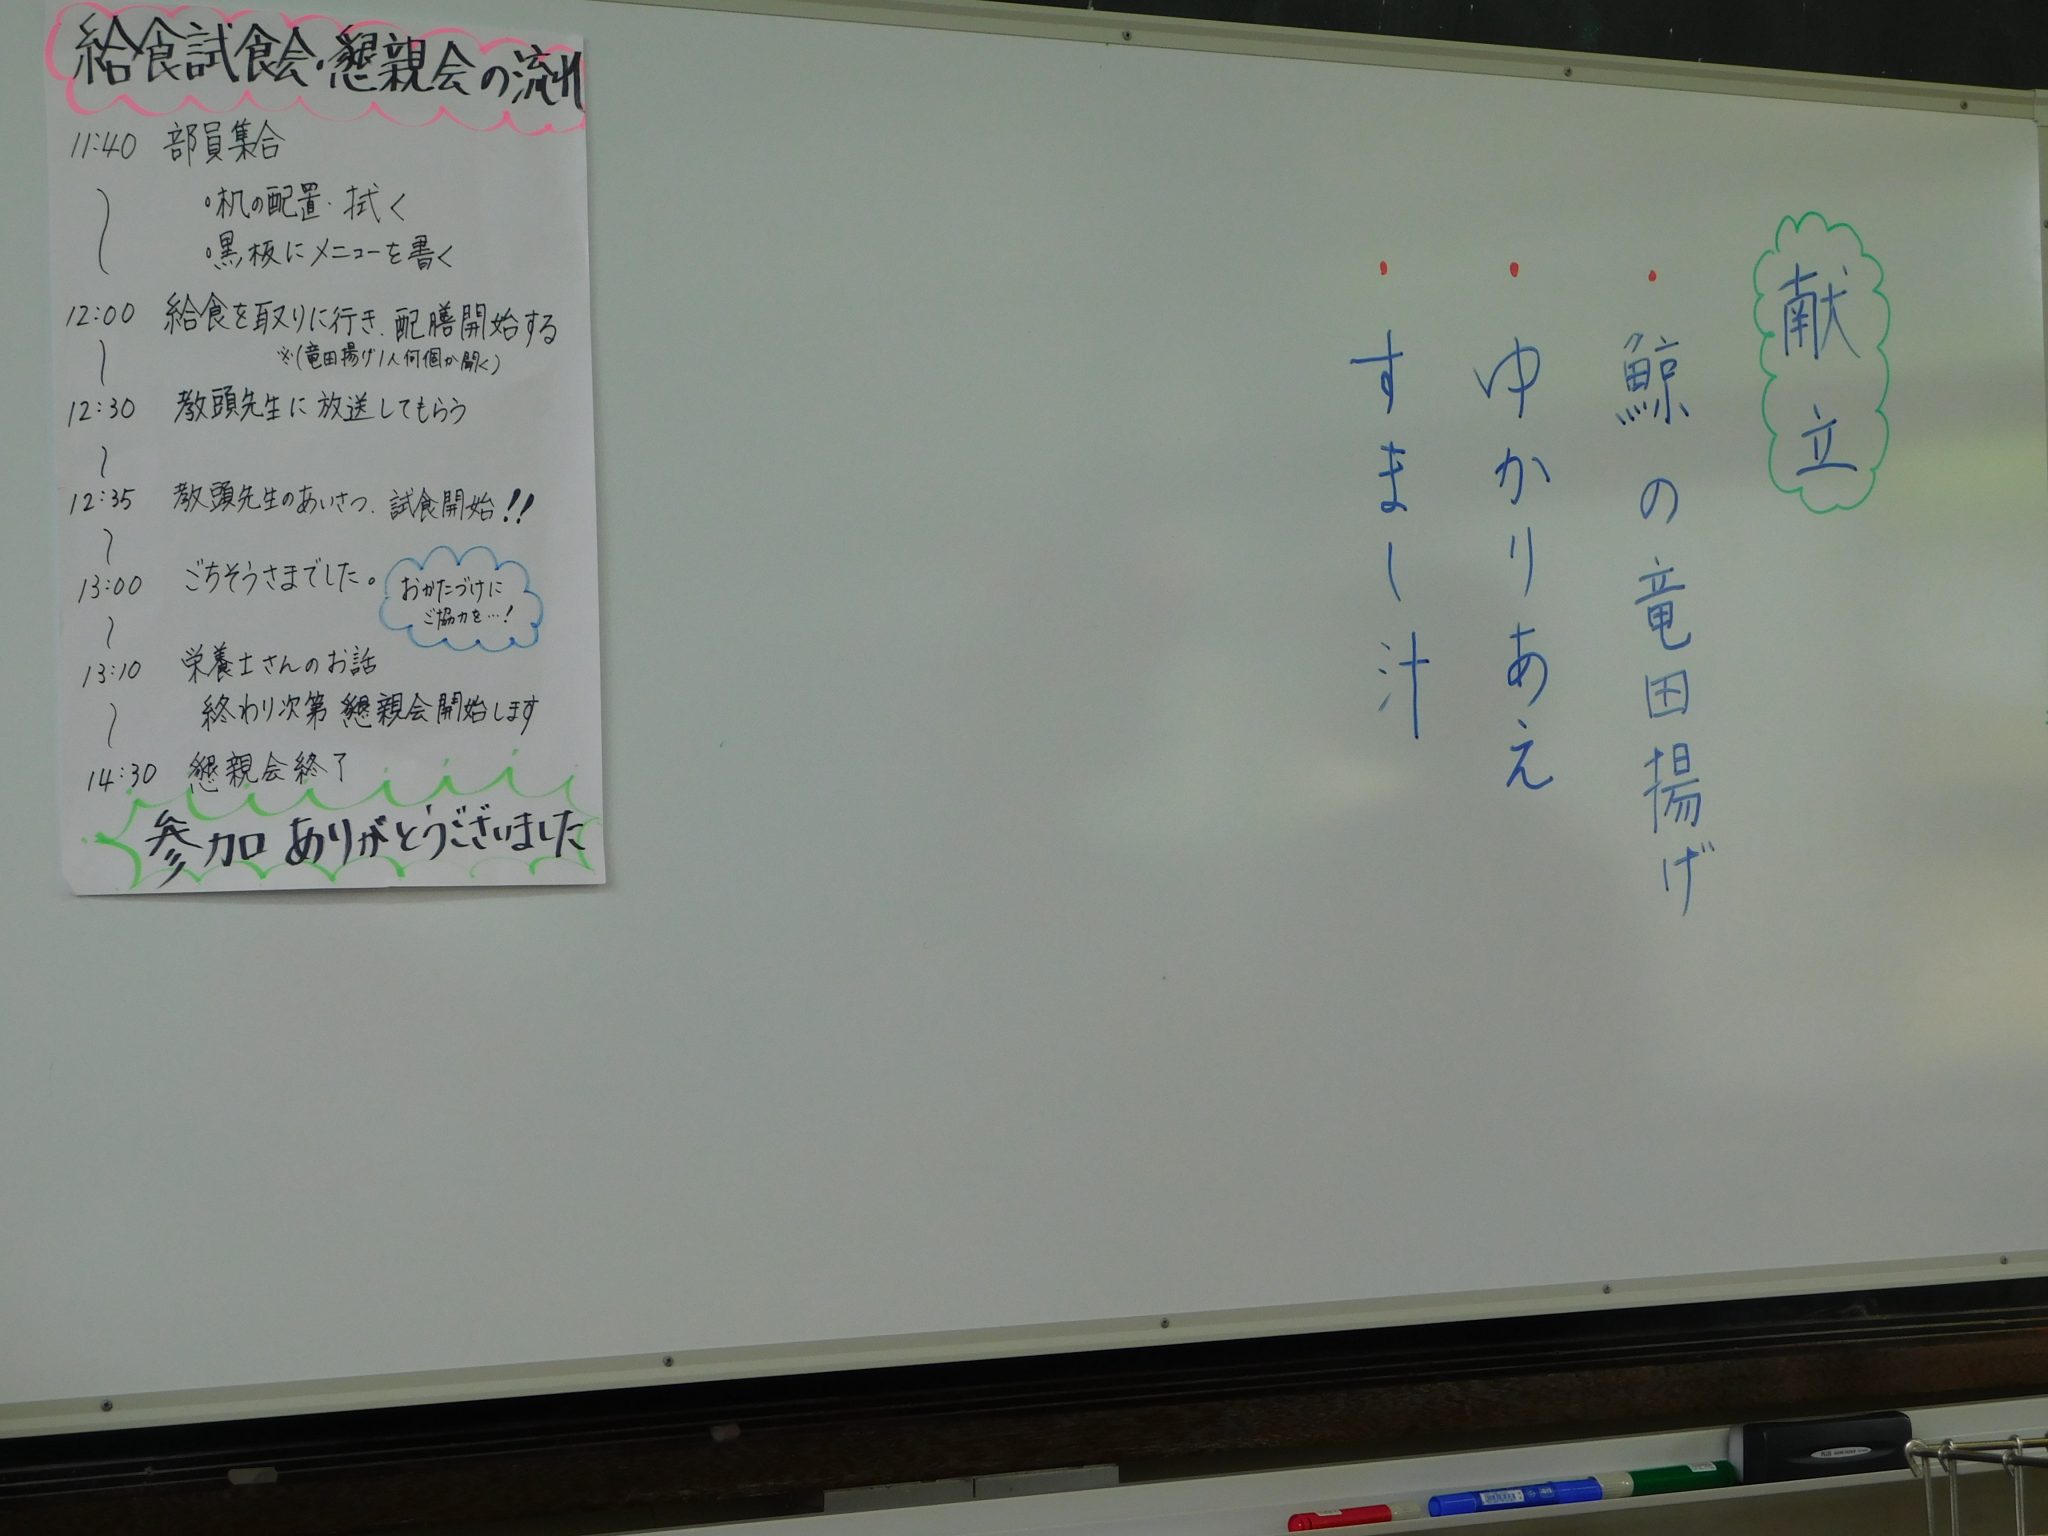 給食試食会・懇親会の流れ
11:40 部員集合
〜
・机の配置・拭く
・黒板にメニューを書く
12:00 給食を取りに行き、配膳開始する
※(竜田揚げ1人何個か聞く)
〜
12:30 教頭先生に放送してもらう
〜
12:35 教頭先生のあいさつ、試食開始!!
〜
13:00 ごちそうさまでした。
おかたづけに
ご協力を…!
〜
13:10 栄養士さんのお話
終わり次第 懇親会開始します
〜
14:30 懇親会終了
参加ありがとうございました
献立
・鯨の竜田揚げ
・ゆかりあえ
・すまし汁
PLUS